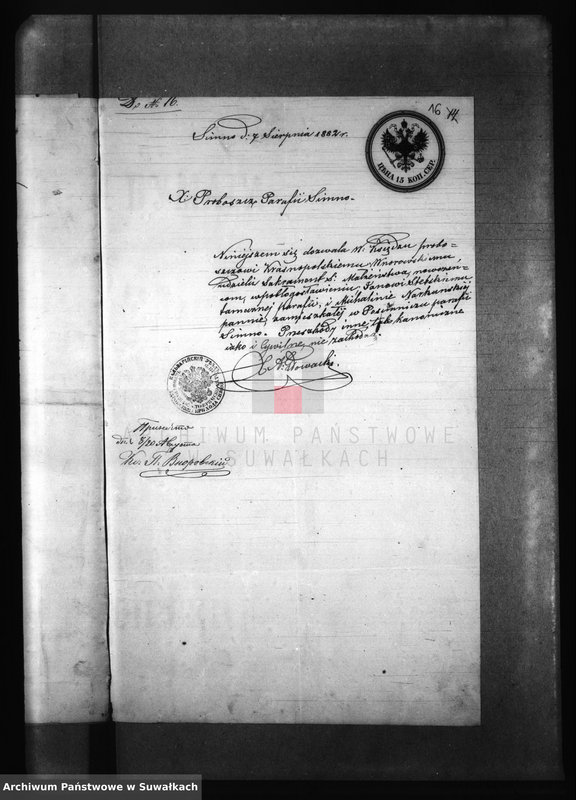 Do № 16.
16 14
Simno d: 7 Sierpnia 1882 r.
ЦѢНА 15 КОП. СЕР.
X. Proboszcz Parafii Simno.
Niniejszem się dozwala W. Księdzu probo-
szczowi Krasnopolskiemu Wnorowskiemu,
udzielić Sakrament S. Małżeństwa, nowożeń-
com, w pobłogosławieniu, Janowi
tamecznej parafii, i Michalinie
pannie, zamieszkałej w parafii
Simno. Przeszkody inne, tak kanoniczne
jako i Cywilne, nie zachodzą.
X. A. Nowacki.
Присяжно
дня 8/20 Августа
Кс. П. Вноровскій
ARCHIWUM PAŃSTWOWE
W SUWAŁKACH
Archiwum Państwowe w Suwałkach